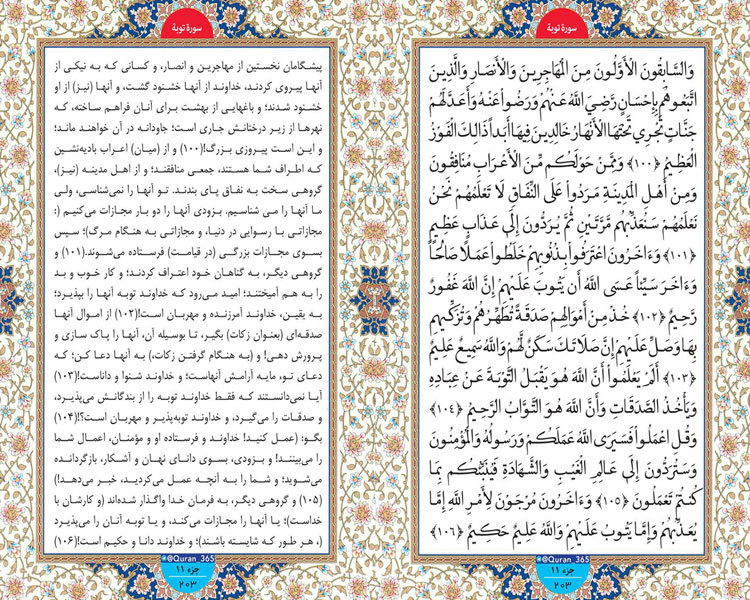 سورهٔ توبة
وَالسَّابِقُونَ الْأَوَّلُونَ مِنَ الْمُهَاجِرِينَ وَالْأَنصَارِ وَالَّذِينَ
اتَّبَعُوهُم بِإِحْسَانٍ رَّضِيَ اللَّهُ عَنْهُمْ وَرَضُوا عَنْهُ وَأَعَدَّ لَهُمْ
جَنَّاتٍ تَجْرِي تَحْتَهَا الْأَنْهَارُ خَالِدِينَ فِيهَا أَبَدًا ذَٰلِكَ الْفَوْزُ
الْعَظِيمُ ﴿١٠٠﴾ وَمِمَّنْ حَوْلَكُم مِّنَ الْأَعْرَابِ مُنَافِقُونَ
وَمِنْ أَهْلِ الْمَدِينَةِ مَرَدُوا عَلَى النِّفَاقِ لَا تَعْلَمُهُمْ نَحْنُ
نَعْلَمُهُمْ سَنُعَذِّبُهُم مَّرَّتَيْنِ ثُمَّ يُرَدُّونَ إِلَىٰ عَذَابٍ عَظِيمٍ
﴿١٠١﴾ وَءَاخَرُونَ اعْتَرَفُوا بِذُنُوبِهِمْ خَلَطُوا عَمَلًا صَالِحًا
وَءَاخَرَ سَيِّئًا عَسَى اللَّهُ أَن يَتُوبَ عَلَيْهِمْ إِنَّ اللَّهَ غَفُورٌ
رَّحِيمٌ ﴿١٠٢﴾ خُذْ مِنْ أَمْوَالِهِمْ صَدَقَةً تُطَهِّرُهُمْ وَتُزَكِّيهِم
بِهَا وَصَلِّ عَلَيْهِمْ إِنَّ صَلَاتَكَ سَكَنٌ لَّهُمْ وَاللَّهُ سَمِيعٌ عَلِيمٌ
﴿١٠٣﴾ أَلَمْ يَعْلَمُوا أَنَّ اللَّهَ هُوَ يَقْبَلُ التَّوْبَةَ عَنْ عِبَادِهِ
وَيَأْخُذُ الصَّدَقَاتِ وَأَنَّ اللَّهَ هُوَ التَّوَّابُ الرَّحِيمُ ﴿١٠٤﴾
وَقُلِ اعْمَلُوا فَسَيَرَى اللَّهُ عَمَلَكُمْ وَرَسُولُهُ وَالْمُؤْمِنُونَ
وَسَتُرَدُّونَ إِلَىٰ عَالِمِ الْغَيْبِ وَالشَّهَادَةِ فَيُنَبِّئُكُم بِمَا
كُنتُمْ تَعْمَلُونَ ﴿١٠٥﴾ وَءَاخَرُونَ مُرْجَوْنَ لِأَمْرِ اللَّهِ إِمَّا
يُعَذِّبُهُمْ وَإِمَّا يَتُوبُ عَلَيْهِمْ وَاللَّهُ عَلِيمٌ حَكِيمٌ ﴿١٠٦﴾
@Quran_365
جزء ١١
٢٠٣
سورهٔ توبة
پیشگامان نخستین از مهاجرین و انصار، و کسانی که به نیکی از
آنها پیروی کردند، خداوند از آنها خشنود گشت، و آنها (نیز) از او
خشنود شدند؛ و باغهایی از بهشت برای آنان فراهم ساخته، که
نهرها از زیر درختانش جاری است؛ جاودانه در آن خواهند ماند؛
و این است پیروزی بزرگ!(۱۰۰) و از (میان) اعراب بادیه‌نشین
که اطراف شما هستند، جمعی منافقند؛ و از اهل مدینه (نیز)،
گروهی سخت به نفاق پای بندند. تو آنها را نمی‌شناسی، ولی
ما آنها را می شناسیم. بزودی آنها را دو بار مجازات می‌کنیم (:
مجازاتی با رسوایی در دنیا، و مجازاتی به هنگام مرگ)؛ سپس
بسوی مجازات بزرگی (در قیامت) فرستاده می‌شوند.(۱۰۱) و
گروهی دیگر، به گناهان خود اعتراف کردند؛ و کار خوب و بد
را به هم آمیختند؛ امید می‌رود که خداوند توبه آنها را بپذیرد؛
به یقین، خداوند آمرزنده و مهربان است!(۱۰۲) از اموال آنها
صدقه‌ای (بعنوان زکات) بگیر، تا بوسیله آن، آنها را پاک سازی و
پرورش دهی! و (به هنگام گرفتن زکات،) به آنها دعا کن؛ که
دعای تو، مایه آرامش آنهاست؛ و خداوند شنوا و داناست!(۱۰۳)
آیا نمی‌دانستند که فقط خداوند توبه را از بندگانش می‌پذیرد،
و صدقات را می‌گیرد، و خداوند توبه‌پذیر و مهربان است؟!(۱۰۴)
بگو: (عمل کنید! خداوند و فرستاده او و مؤمنان، اعمال شما
را می‌بینند! و بزودی، بسوی دانای نهان و آشکار، بازگردانده
می‌شوید؛ و شما را به آنچه عمل می‌کردید، خبر می‌دهد!)
(۱۰۵) و گروهی دیگر، به فرمان خدا واگذار شده‌اند (و کارشان با
خداست)؛ یا آنها را مجازات می‌کند، و یا توبه آنان را می‌پذیرد
(، هر طور که شایسته باشند)؛ و خداوند دانا و حکیم است!(۱۰۶)
@Quran_365
جزء ١١
٢٠٣